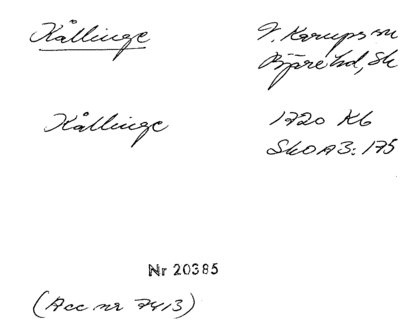 Kållinge
V. Karups sn
Bjäre hd, Sk
Kållinge
1720 Kb
SkOA3:175
Nr 20385
(Acc nr 7413)